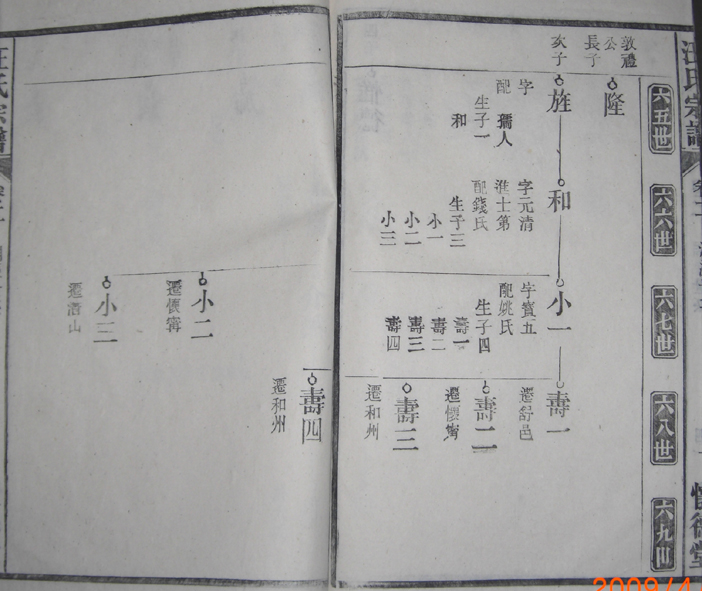 汪氏宗譜
六五世
六六世
六七世
六八世
六九世
敦禮公長子
隆
次子
旌
字
配孺人
生子一
和
和
字元清
進士第
配錢氏
生子三
小一
小二
小三
小一
字寶五
配姚氏
生子四
壽一
壽二
壽三
壽四
壽一
遷舒邑
壽二
遷懷寧
壽三
遷和州
壽四
遷和州
小二
遷懷寧
小三
遷潛山
汪氏宗譜